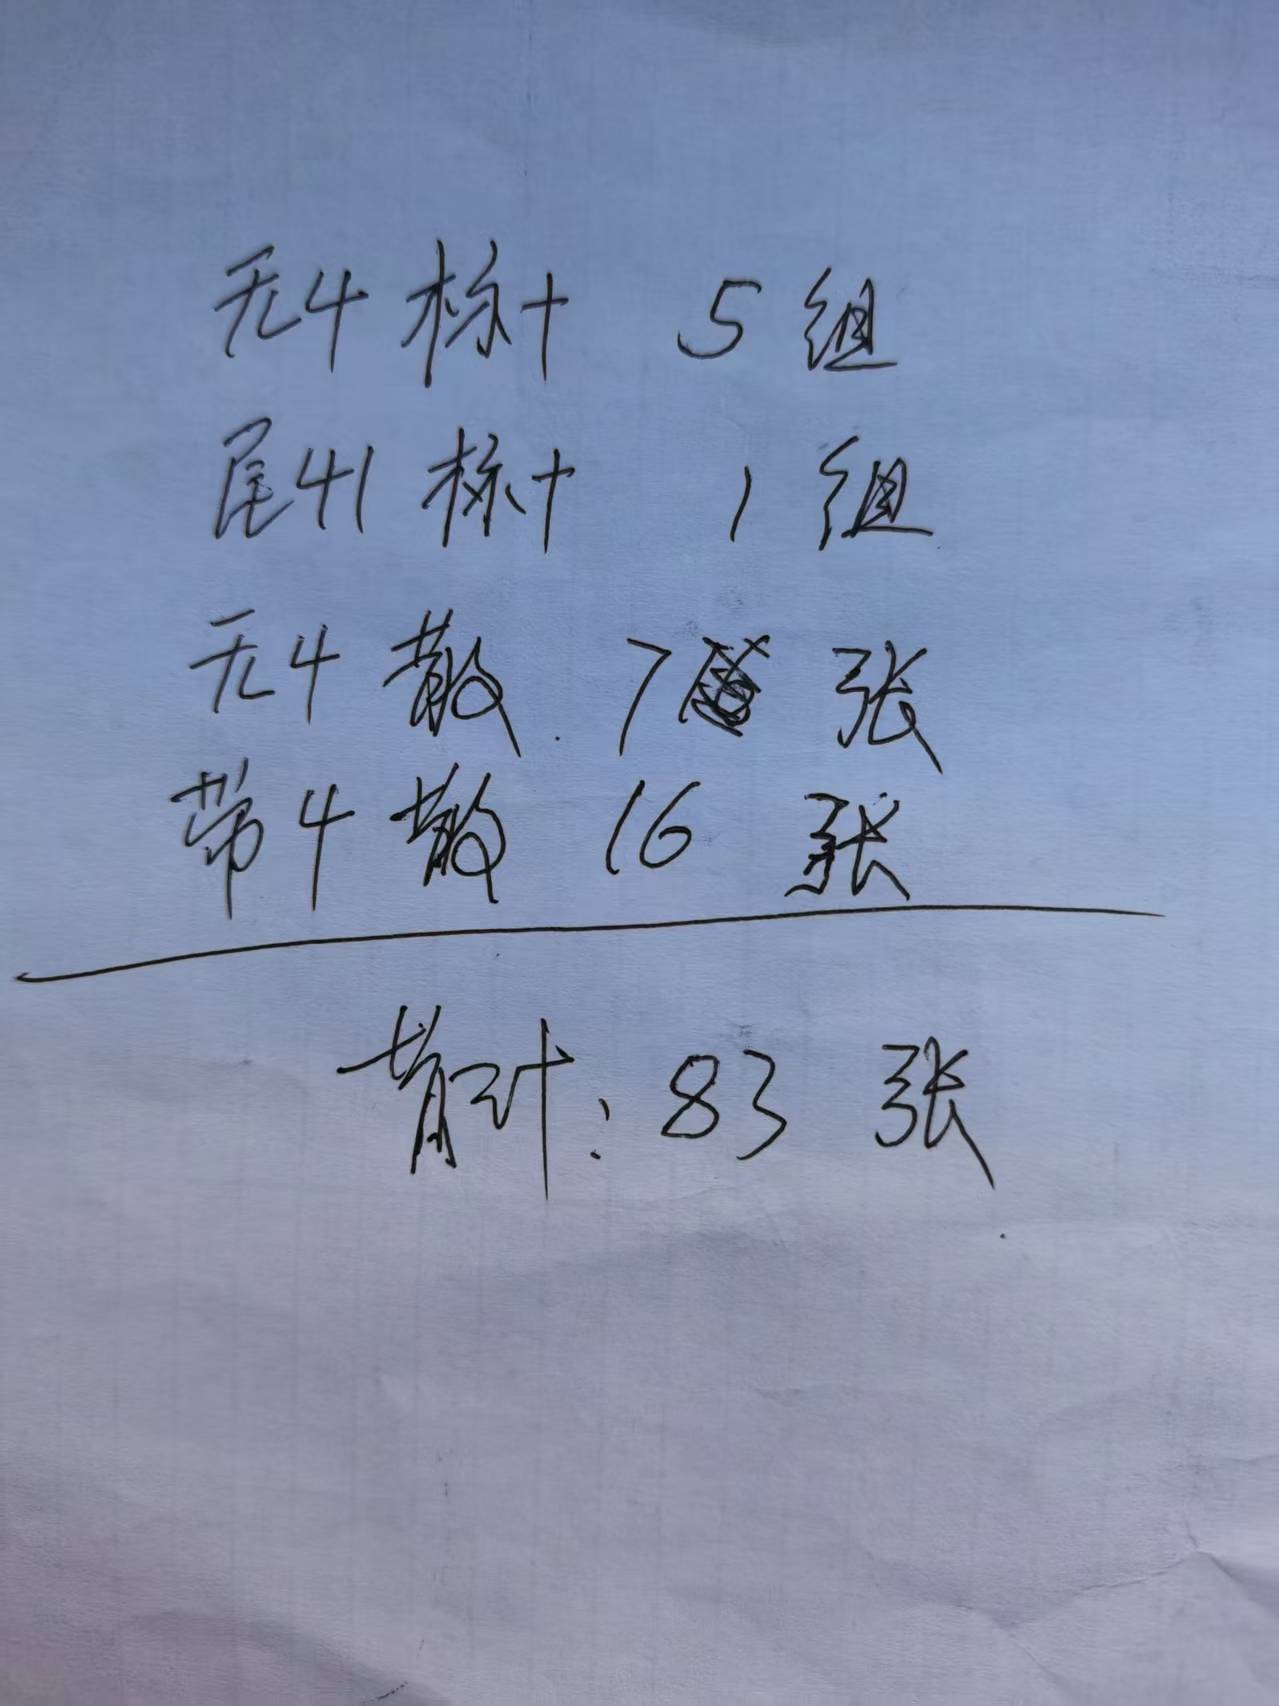 无4 标十 5 组
尾41 标十 1 组
无4 散 7 张
带4 散 16 张
共计: 83 张